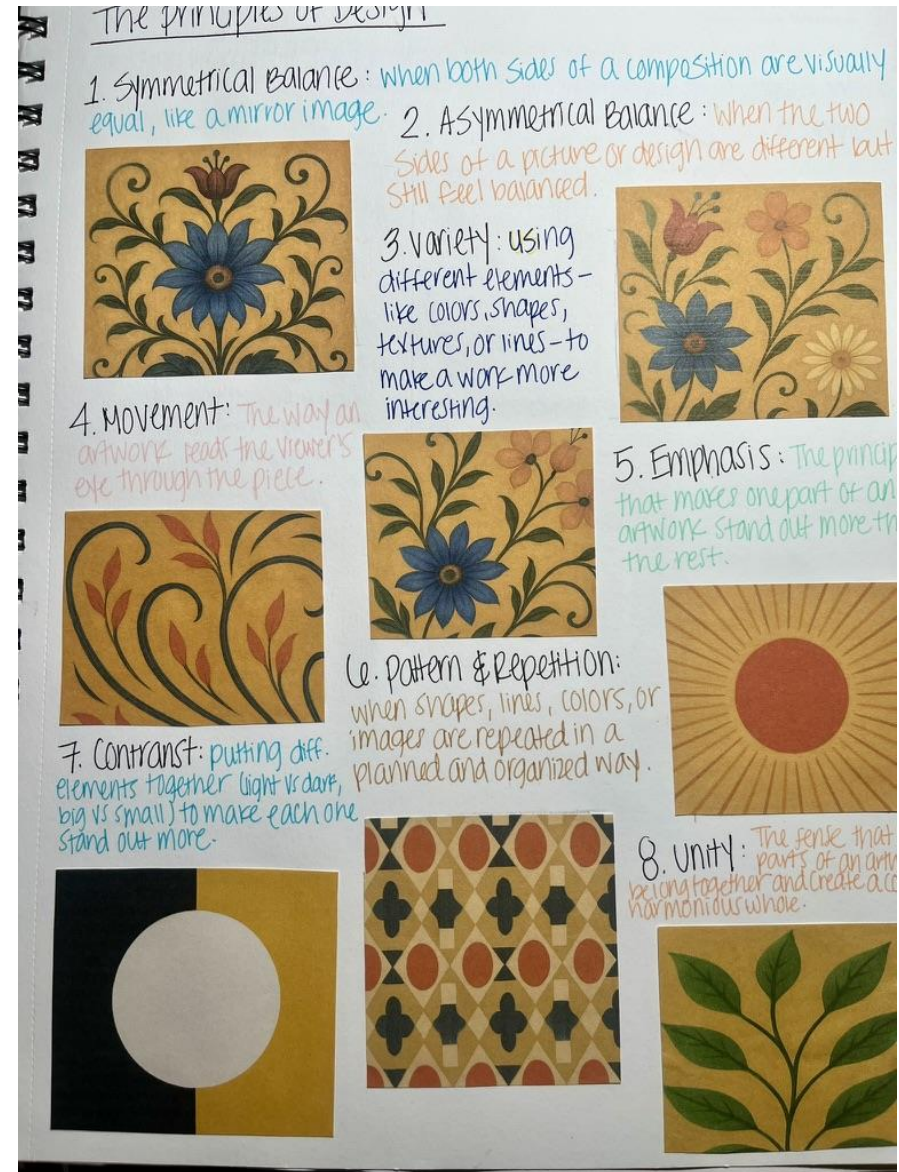 The Principles of Design
1. Symmetrical Balance: when both sides of a composition are visually
equal, like a mirror image.
2. Asymmetrical Balance: When the two
sides of a picture or design are different but
still feel balanced.
3. Variety: using
different elements–
like colors, shapes,
textures, or lines–to
make a work more
interesting.
4. Movement: The way an
artwork leads the viewer's
eye through the piece.
5. Emphasis: The princip
that makes one part of an
artwork stand out more th
the rest.
6. Pattern & Repetition:
when shapes, lines, colors, or
images are repeated in a
planned and organized way.
7. Contranst: putting diff.
elements together (light vs dark,
big vs small) to make each one
stand out more.
8. Unity: The sense that
parts of an artw
belong together and create a co
harmonious whole.